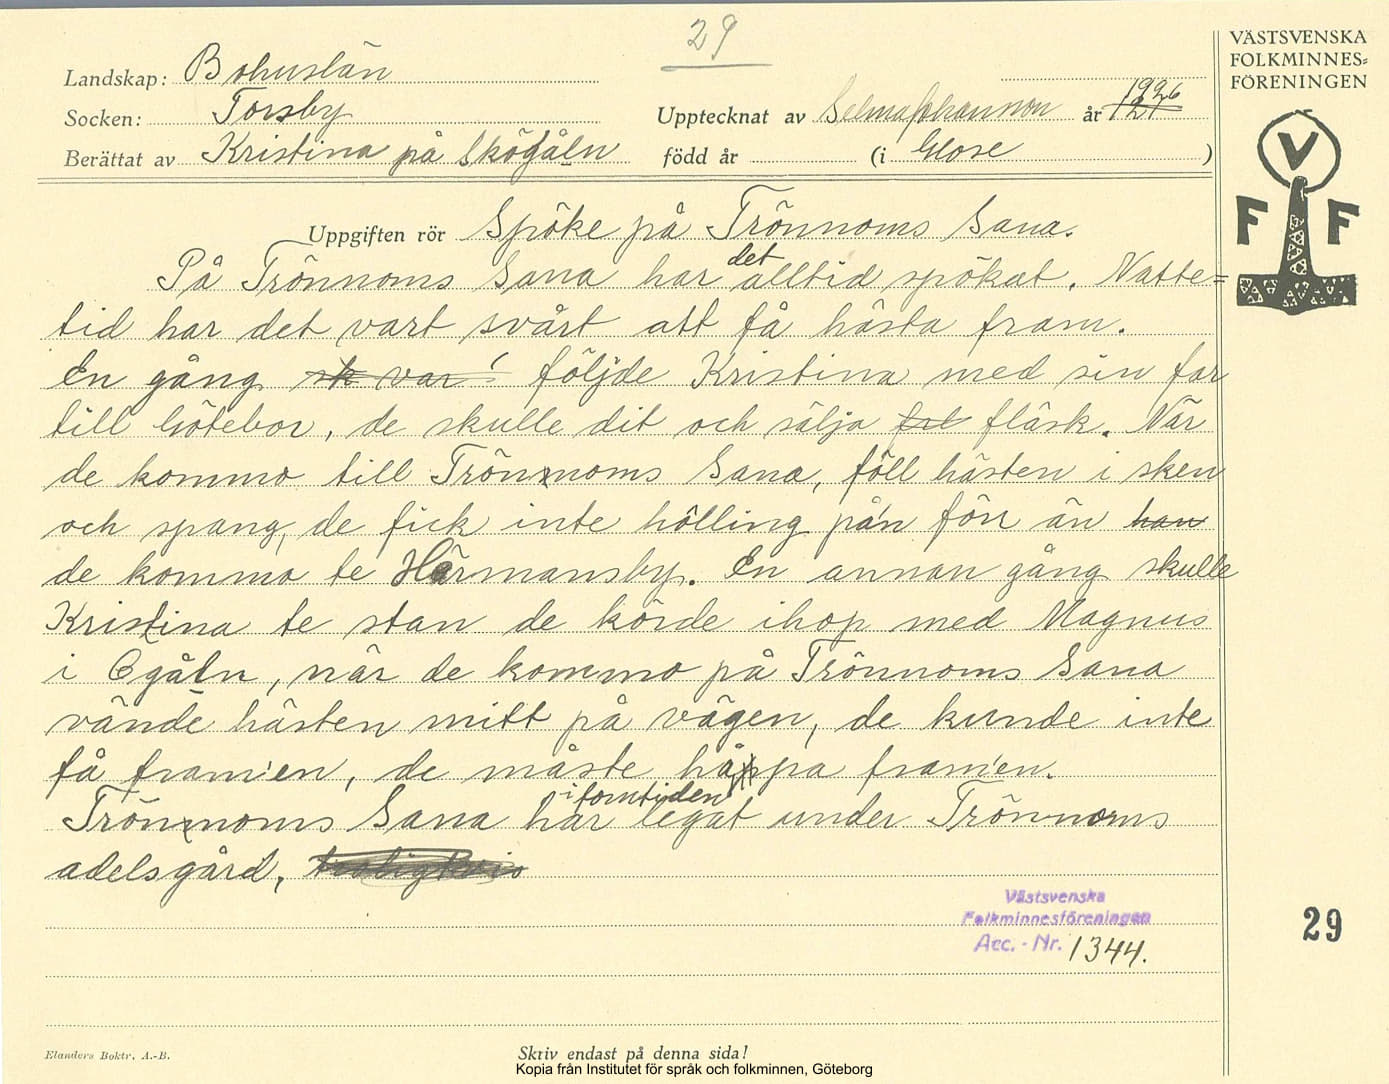 29
VÄSTSVENSKA
FOLKMINNES=
FÖRENINGEN
Landskap: Bohuslän
Socken: Torsby
Upptecknat av Selma Johansson år 1926
Berättat av Kristina på Skögåln född år (i Glose )
V
F F
Uppgiften rör Spöke på Trönnoms Sana.
På Trönnoms Sana har det alltid spökat. Natte=
tid har det vart svårt att få hästa fram.
En gång var följde Kristina med sin far
till Götebor, de skulle dit och sälja fläsk. När
de kommo till Trönnoms Sana, föll hästen i sken
och spang, de fick inte hölling på'n förr än han
de kommo te Härmansby. En annan gång skulle
Kristina te stan de körde ihop med Magnus
i Ögåln, när de kommo på Trönnoms Sana
vände hästen mitt på vägen, de kunde inte
få fram'en, de måste håppa fram'en.
Trönnoms Sana har i forntiden legat under Trönnoms
adelsgård,
Västsvenska
Folkminnesföreningen
Acc. - Nr. 1344.
29
Elanders Boktr. A.-B.
Skriv endast på denna sida!
Kopia från Institutet för språk och folkminnen, Göteborg